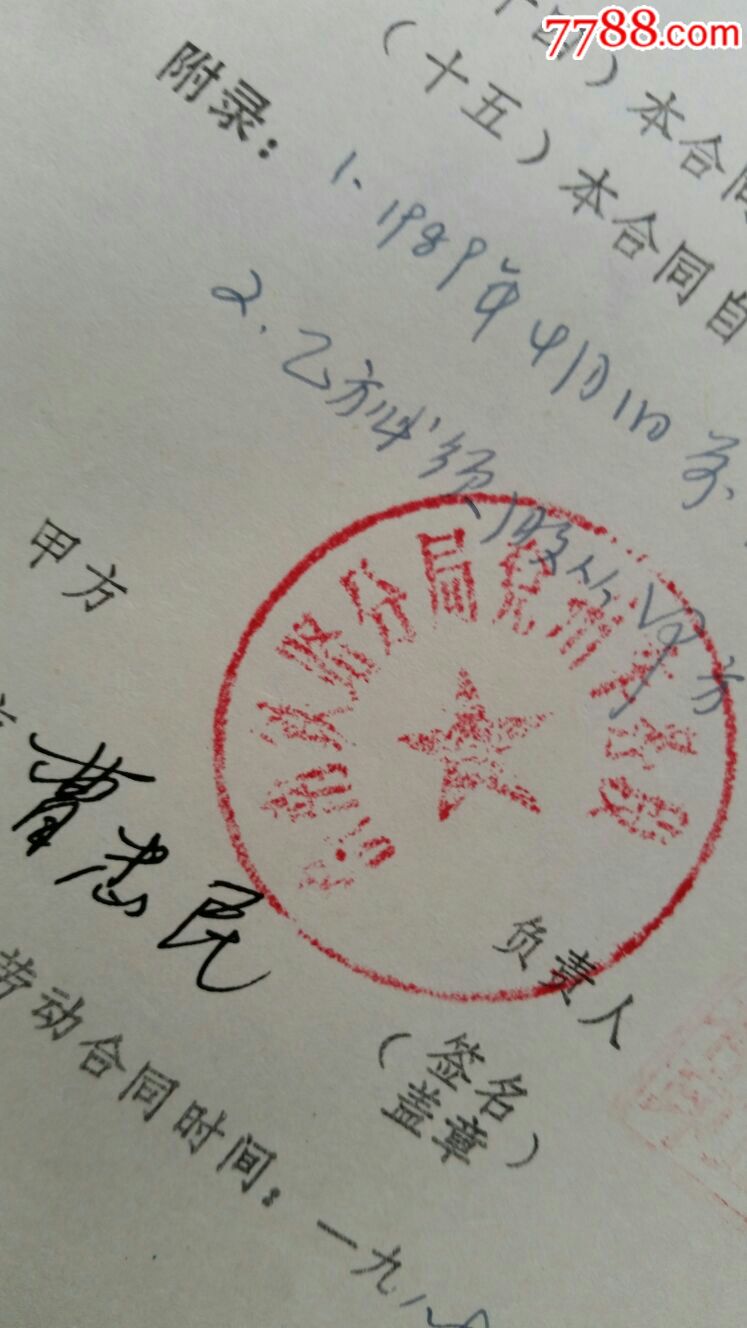 7788.com
十四）本合同
（十五）本合同自
附录：1. 1989年4月10
2. 乙方必须服从甲方
甲方
分局兖州
曹志民
负责人
（签名
盖章）
劳动合同时间：一九八